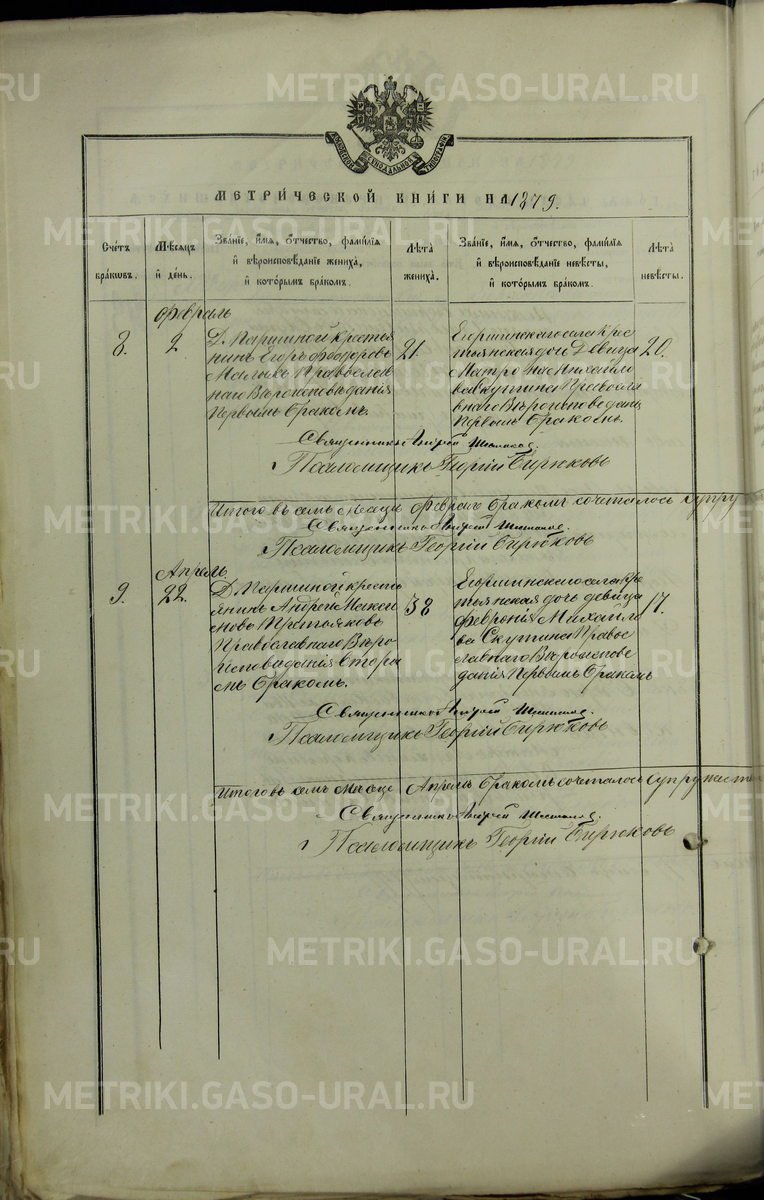 METRIKI.GASO-URAL.RU
МОСКОВСКОЙ СѴНОДАЛЬНОЙ ТИПОГРАФІИ
МЕТРИ́ЧЕСКОЙ КНИ́ГИ НА 1879.
Счетъ браковъ.
Мѣсяцъ и день.
Званіе, имя, отчество, фамилія и вѣроисповѣданіе жениха, и которымъ бракомъ.
Лѣта жениха.
Званіе, имя, отчество, фамилія и вѣроисповѣданіе невѣсты, и которымъ бракомъ.
Лѣта невѣсты.
Февраль
8.
2
Д. Паршиной крестья
нинъ Егоръ Феодоровъ
Малыхъ Православ
наго Вѣроисповѣданія
Первымъ Бракомъ.
21.
Егоршинскаго села Крес
тьянская дочь Девица
Матрона Михайло
ва Скутина Правосла
внаго Вѣроисповеданія
Первымъ Бракомъ.
20.
Священникъ Андрей
Псаломщикъ Георгій Бирюковъ
Итого въ семъ месяце Феврале Бракомъ сочеталось Супру
Священникъ Андрей
Псаломщикъ Георгій Бирюковъ
Апрель
9.
22.
Д. Паршиной кресть
янинъ Андрей
Третьяковъ
Православнаго Вѣро
исповѣданія вторы
мъ Бракомъ.
38
Егоршинскаго села Кре
тьянская дочь девица
Феврония Михайло
ва Скутина Правос
лавнаго Вѣроисповѣ
данія Первымъ Бракомъ
17.
Священникъ Андрей
Псаломщикъ Георгій Бирюковъ
Итого въ семъ месяце Апреле Бракомъ сочеталось Супружест
Священникъ Андрей
Псаломщикъ Георгій Бирюковъ